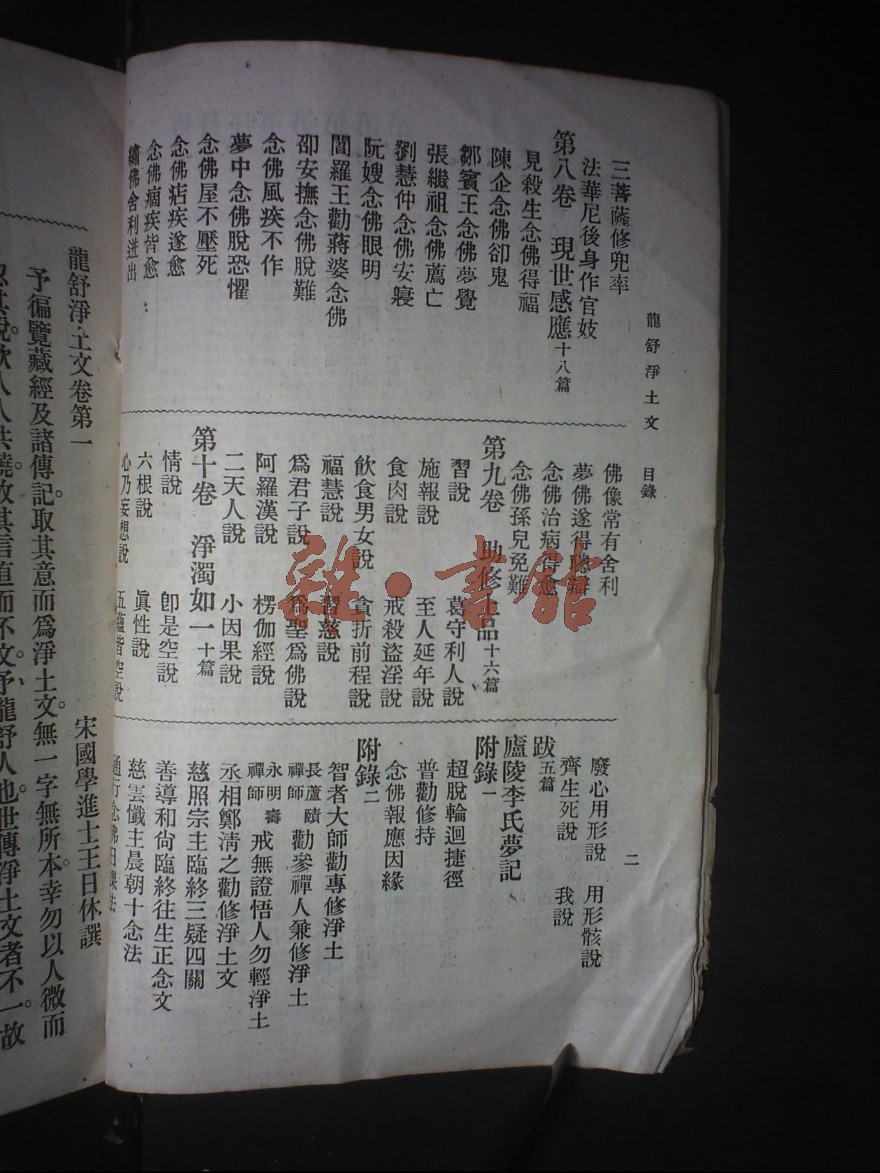 龍舒淨土文　目錄　二
三菩薩修兜率
法華尼後身作官妓
第八卷　現世感應十八篇
見殺生念佛得福
陳企念佛卻鬼
鄒賓王念佛夢覺
張繼祖念佛薦亡
劉慧仲念佛安寢
阮嫂念佛眼明
閻羅王勸蔣婆念佛
邵安撫念佛脫難
念佛風疾不作
夢中念佛脫恐懼
念佛屋不壓死
念佛痁疾遂愈
念佛痼疾皆愈
繡佛舍利迸出
佛像常有舍利
夢佛遂得聰辯
念佛治病得愈
念佛孫兒免難
第九卷　助修上品十六篇
習說　葛守利人說
施報說　至人延年說
食肉說　戒殺盜淫說
飲食男女說　貪折前程說
福慧說　習慈說
爲君子說　爲聖爲佛說
阿羅漢說　楞伽經說
二天人說　小因果說
第十卷　淨濁如一十篇
情說　卽是空說
六根說　眞性說
心乃妄想說　五蘊皆空說
廢心用形說　用形骸說
齊生死說　我說
跋五篇
廬陵李氏夢記
附錄一
超脫輪迴捷徑
普勸修持
念佛報應因緣
附錄二
智者大師勸專修淨土
長蘆賾禪師勸參禪人兼修淨土
永明壽禪師戒無證悟人勿輕淨土
丞相鄭淸之勸修淨土文
慈照宗主臨終三疑四關
善導和尙臨終往生正念文
慈雲懺主晨朝十念法
通行念佛日課法
龍舒淨土文卷第一
宋國學進士王日休譔
予徧覽藏經及諸傳記。取其意而爲淨土文。無一字無所本。幸勿以人微而
忽其說。欲人人共曉。故其言直而不文。予龍舒人也。世傳淨土文者不一。故
雜·書館